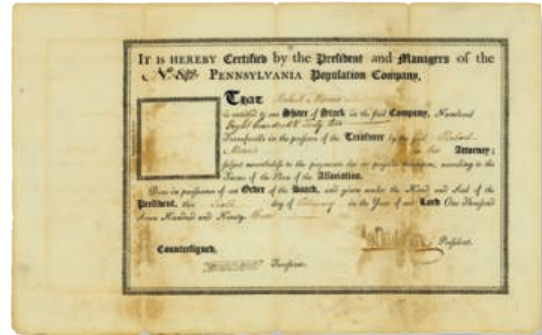 IT IS HEREBY Certified by the President and Managers of the
No. PENNSYLVANIA Population Company,
THAT Robert Morris
is entitled to one Share of Stock in the said Company, Numbered
Eight hundred & forty two
Transferable in the presence of the Treasurer by the said Robert
Morris or his Attorney;
subject nevertheless to the payments due or payable thereupon, according to the
Terms of the Plan of the Association.
Done in pursuance of an Order of the Board, and given under the Hand and Seal of the
President, this day of February in the Year of our Lord One Thousand
Seven Hundred and Ninety three
President.
Countersigned,
Treasurer.